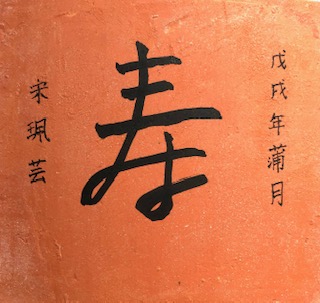 戊戌年蒲月
寿
宋珮芸